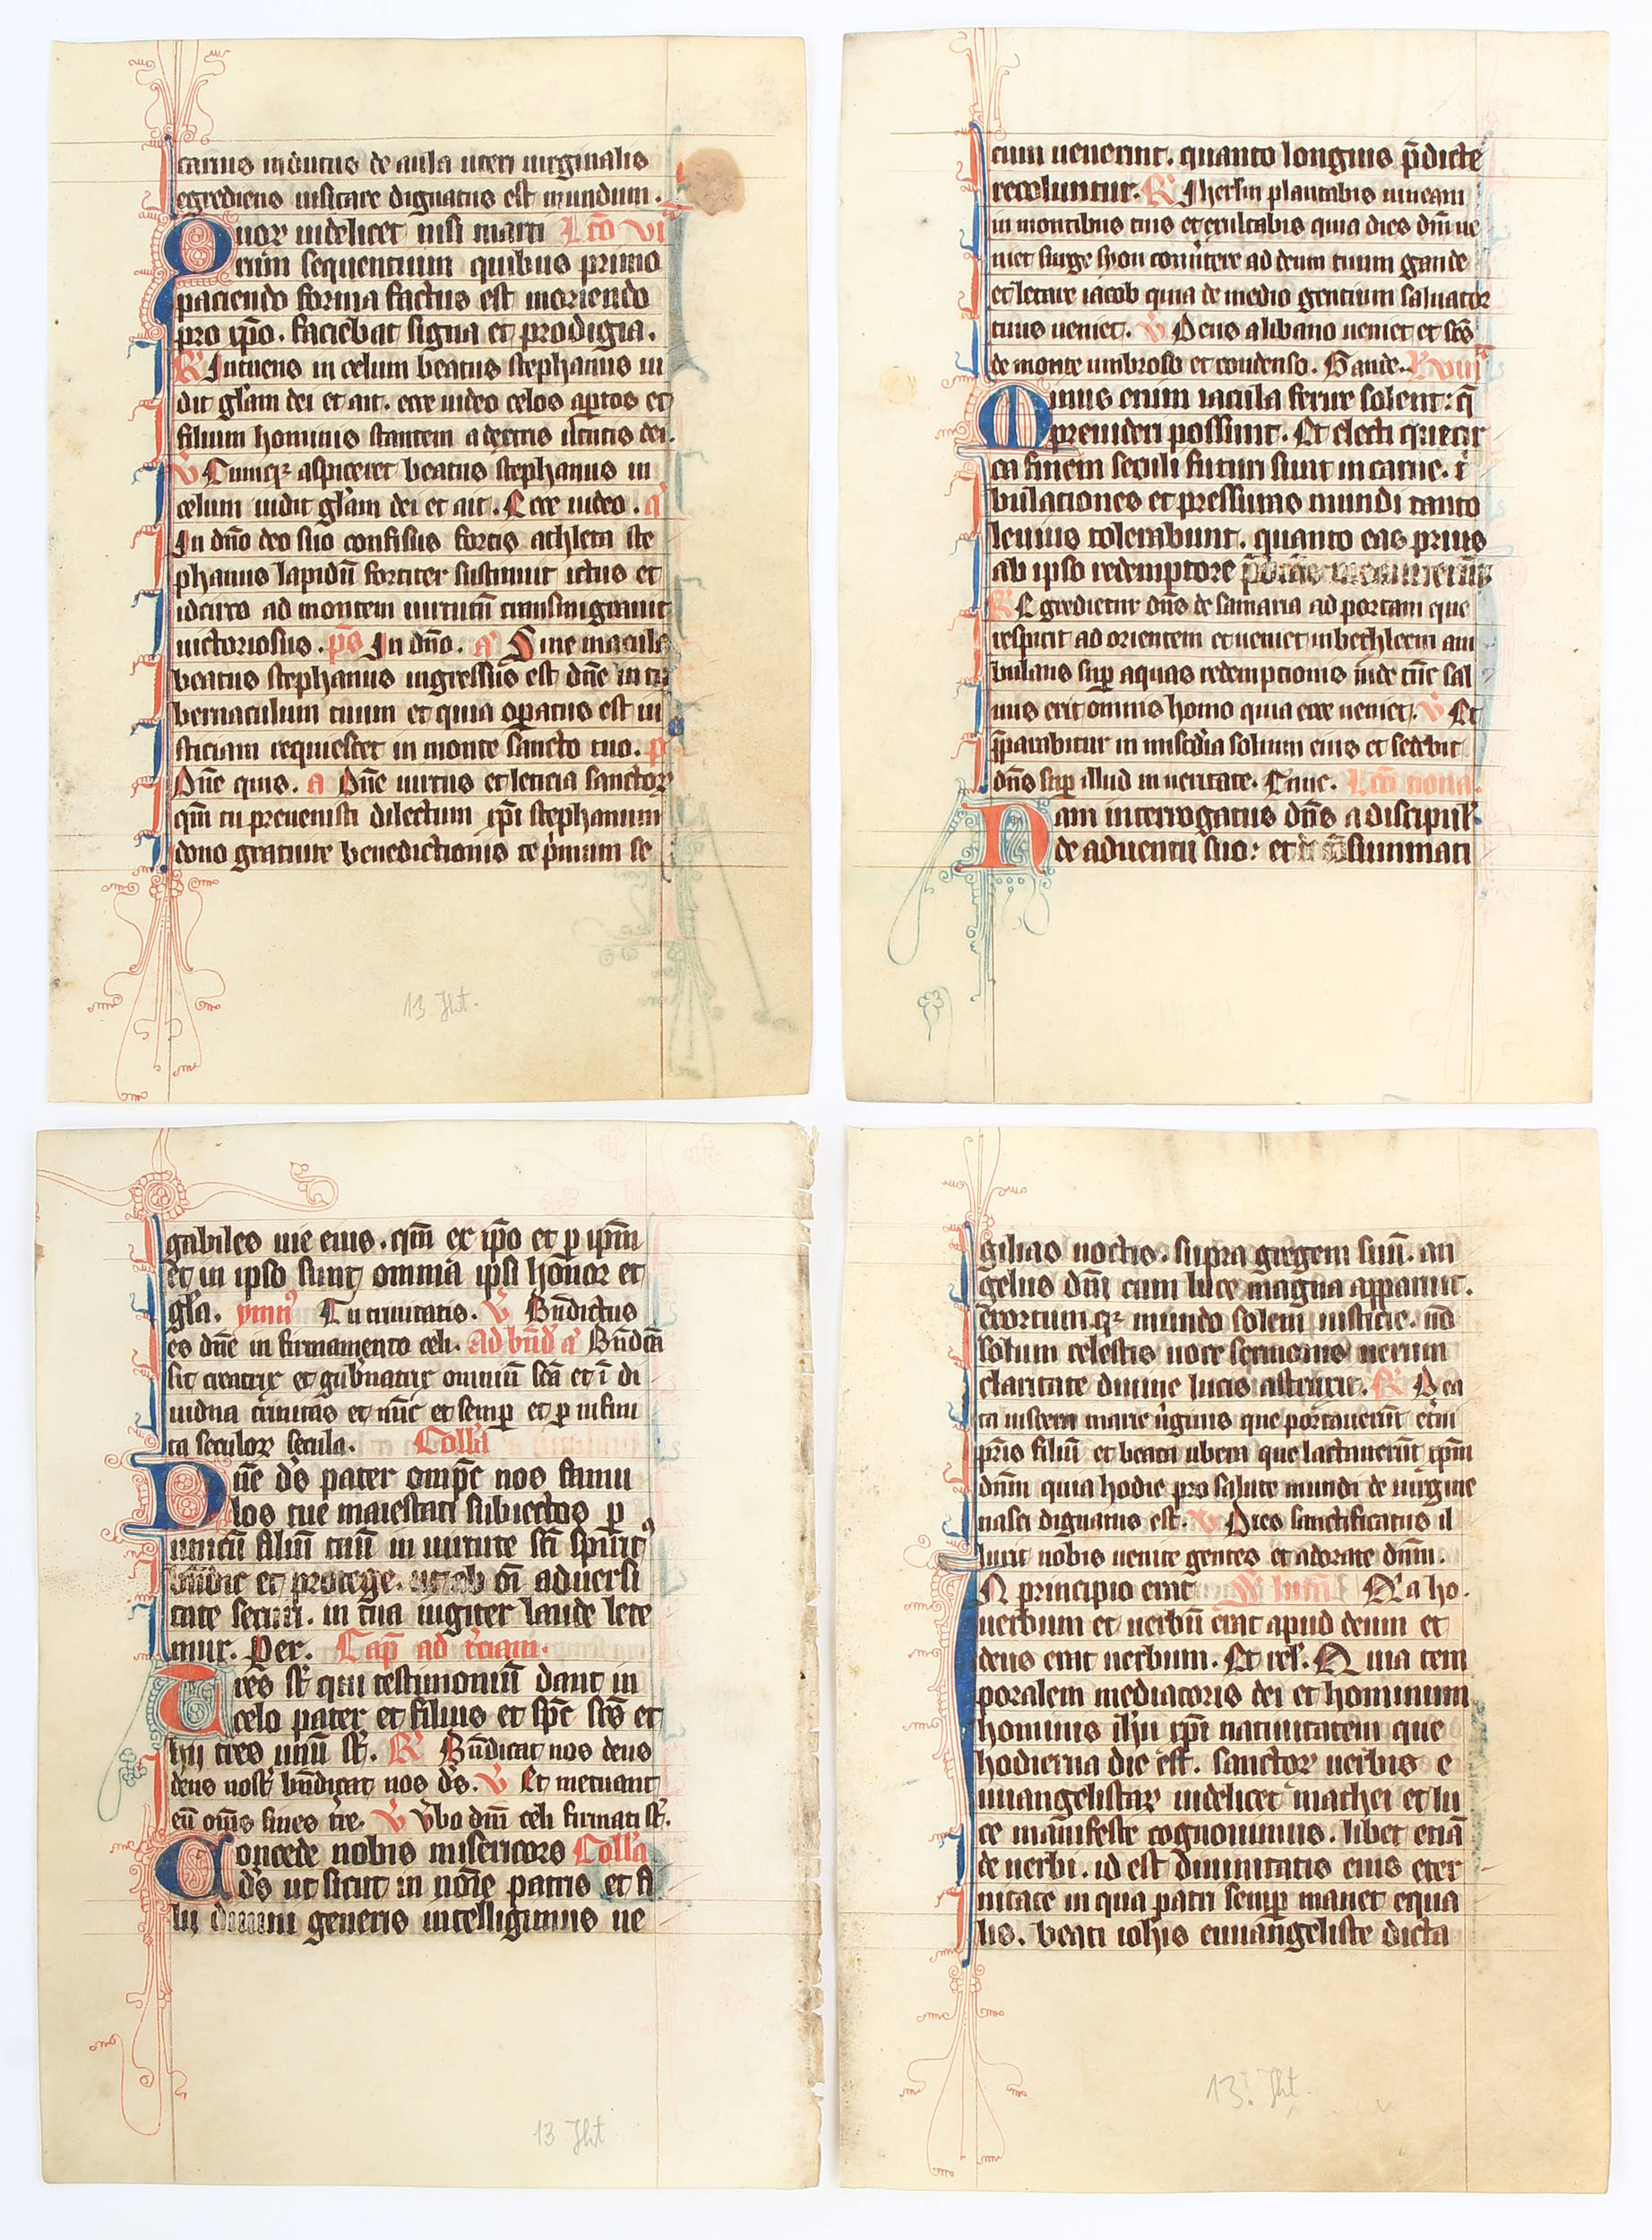 carnis indutus de aula uteri uirginalis
egrediens uisitare dignatus est mundum.
Quor uidelicet nisi marti Lc̄o vi
rum sequentium quibus primo
paciendo forma factus est moriendo
pro ip̄o. faciebat signa et prodigia.
R Intuens in celum beatus stephanus ui
dit gl̄am dei et ait. ecce uideo celos aꝑtos et
filium hominis stantem a dextris uirtutis dei.
V Cumqꝫ aspiceret beatus stephanus in
celum uidit gl̄am dei et ait. Ecce uideo. a
In dn̄o deo suo confisus fortis athleta ste
phanus lapidū fortiter sustinuit ictus et
idcirco ad montem uirtutū transmigrauit
uictoriosus. ps̄ In dn̄o. a Sine macula
beatus stephanus ingressus est dn̄e in ta
bernaculum tuum et quia oꝑatus est iu
sticiam requiescet in monte sancto tuo. p
Dn̄e quis. a Dn̄e uirtus et leticia sanctoꝝ
qm̄ tu preuenisti dilectum xp̄i stephanum
dono gratuite benedictionis te p̄mium se
13. Jht.
cum uenerint. quanto longius p̄dicte
recoluntur. R Jherl̄m plantabis uineam
in montibus tuis et exultabis quia dies dn̄i ue
niet surge syon conuertere ad deum tuum gaude
et letare iacob quia de medio gentium saluator
tuus ueniet. V Deus a libano ueniet et sc̄s
de monte umbroso et condenso. Gaude. R viii
Minus enim iacula ferire solent: q̄
preuideri possunt. Et electi qui cir
ca finem seculi futuri sunt in carne. t̄
bulationes et pressuras mundi tanto
leuius tolerabunt. quanto eas prius
ab ipso redemptore
R Egredietur dn̄s de samaria ad portam que
respicit ad orientem et ueniet in bethleem am
bulans suꝑ aquas redemptionis iude tūc sal
uus erit omnis homo quia ecce ueniet. V Et
p̄parabitur in mis̄cdia solium eius et sedebit
dn̄s suꝑ illud in ueritate. Tunc. Lc̄o nona.
Nam interrogatus dn̄s a discipul̄
de aduentu suo: et de consummati
gabiles uie eius. qm̄ ex ip̄o et ꝑ ip̄m
et in ipso sunt omnia ipsi honor et
gl̄a. ymn̄ Tu trinitatis. V Bn̄dictus
es dn̄e in firmamento celi. Ad bn̄d a Bn̄dc̄a
sit creatrix et gub̄natrix omniū sc̄a et ī di
uidua trinitas et nūc et semꝑ et ꝑ infini
ta seculoꝝ secula. Coll̄a
Dn̄e ds̄ pater omp̄c nos famu
los tue maiestati subiectos ꝑ
unicū filiū tuū in uirtute sc̄i sp̄ūs
bn̄dic et protege. ut ab oī aduersi
tate securi. in tua iugiter laude lete
mur. Per. Cap̄ ad t̄ciam.
Tres st̄ qui testimoniū dant in
celo pater et filius et sp̄c sc̄s et
hij tres unū st̄. R Bn̄dicat nos deus
deus nost̄ bn̄dicat nos ds̄. V Et metuant
eū om̄s fines t̄re. V Vbo dn̄i celi firmati st̄.
Concede nobis misericors Coll̄a
ds̄ ut sicut in nōīe patris et fi
lij diuini generis intelligimus ue
13 Jht
gilias noctis. supra gregem suū. an
gelus dn̄i cum luce magna apparuit.
exortum qꝫ mundo solem iusticie. nō
solum celestis uoce sermonis uerum
claritate diuine lucis astruxit. R Bea
ta uiscera marie ūginis que portauerūt et̄ni
pr̄is filiū et beata ubera que lactauerūt xp̄m
dn̄m quia hodie pro salute mundi de uirgine
nasci dignatus est. V Dies sanctificatus il
luxit nobis uenite gentes et adorate dn̄m.
IN principio erat Na ho.
uerbum et uerbū erat apud deum et
deus erat uerbum. Et rel̄. Quia tem
poralem mediatoris dei et hominum
hominis ih̄u xp̄i natiuitatem que
hodierna die est. sanctoꝝ uerbis e
uuangelistaꝝ uidelicet mathei et lu
ce manifeste cognouimus. libet etiā
de uerbi. id est diuinitatis eius eter
nitate in qua patri semꝑ manet equa
lis. beati ioh̄is euuangeliste dicta
13. Jht.